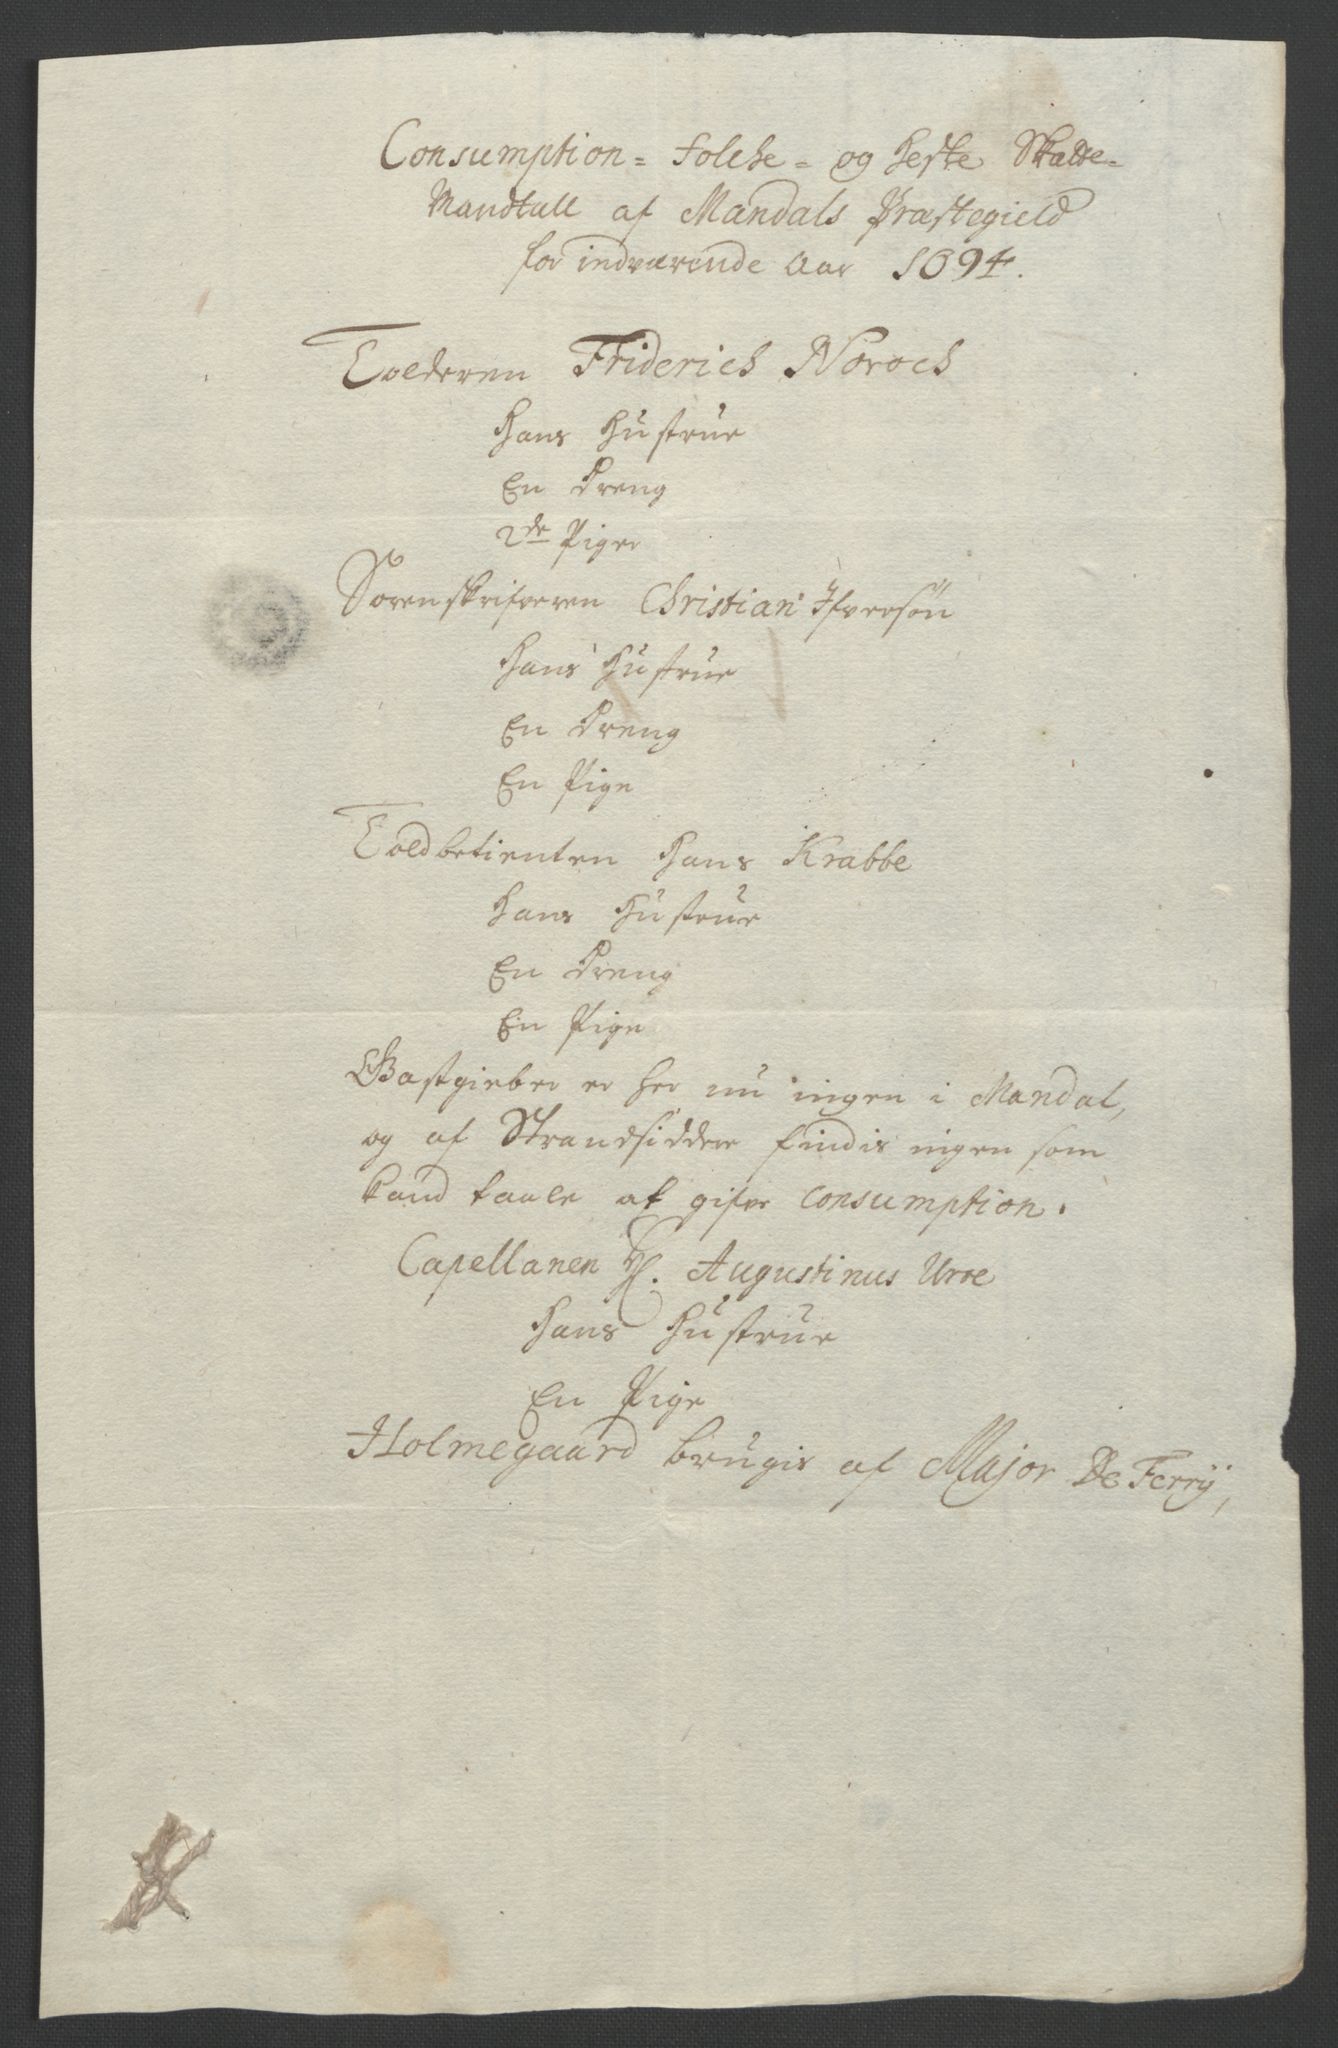 Consumption= Folche= og Heste Skatte=
Mandtall af Mandals Præstegield
for indværende Aar 1694.
Tolderen Friderich Noroch
Hans Hustrue
En Dreng
2de Piger
Sorenskrifveren Christian Ifversøn
Hans Hustrue
En Dreng
En Pige
Toldbetienten Hans Krabbe
Hans Hustrue
En Dreng
Een Pige
Gastgieber er her nu ingen i Mandal,
og af Strandsiddere findis ingen som
kand taale at gifve Consumption.
Capellanen H. Augustinus Urne
Hans Hustrue
En Pige
Holmegaard brugis af Major De Ferrÿ,